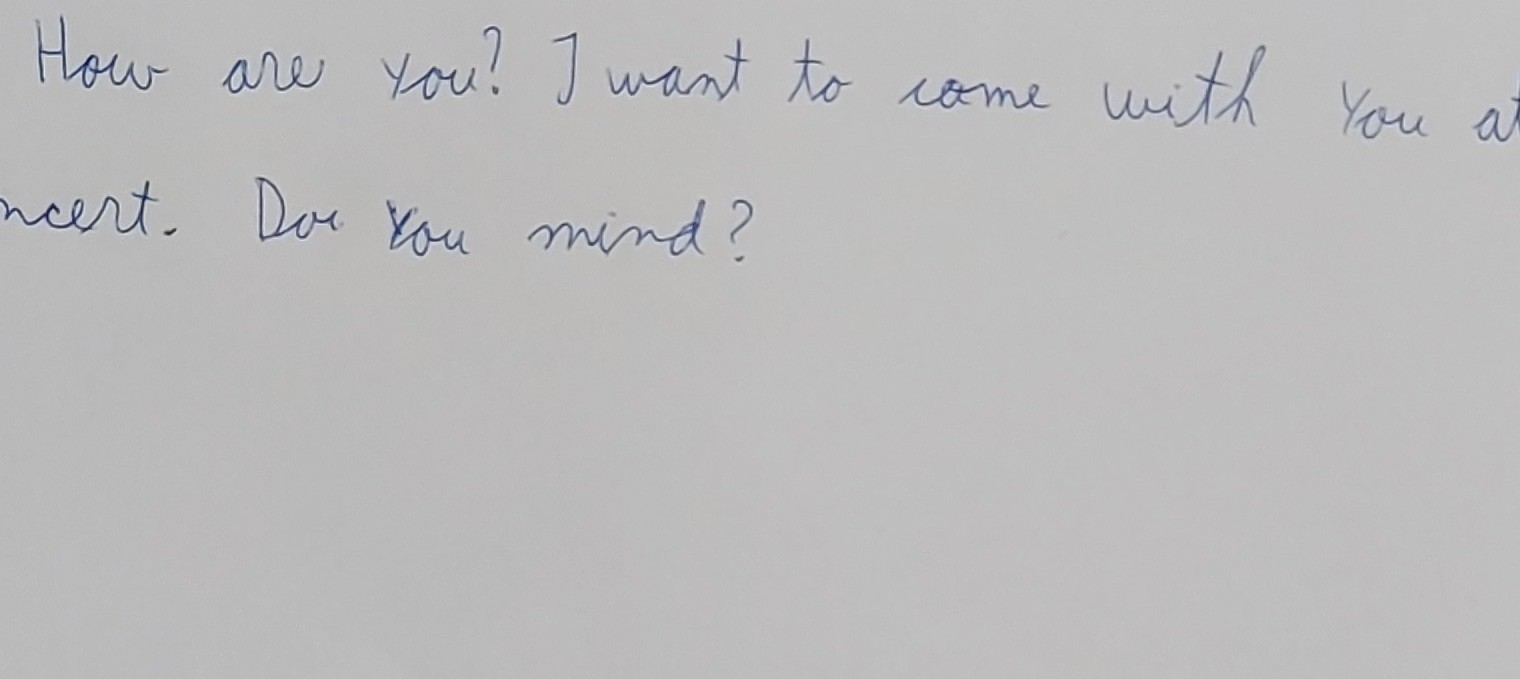 How are you? I want to come with You at
ncert. Do You mind?